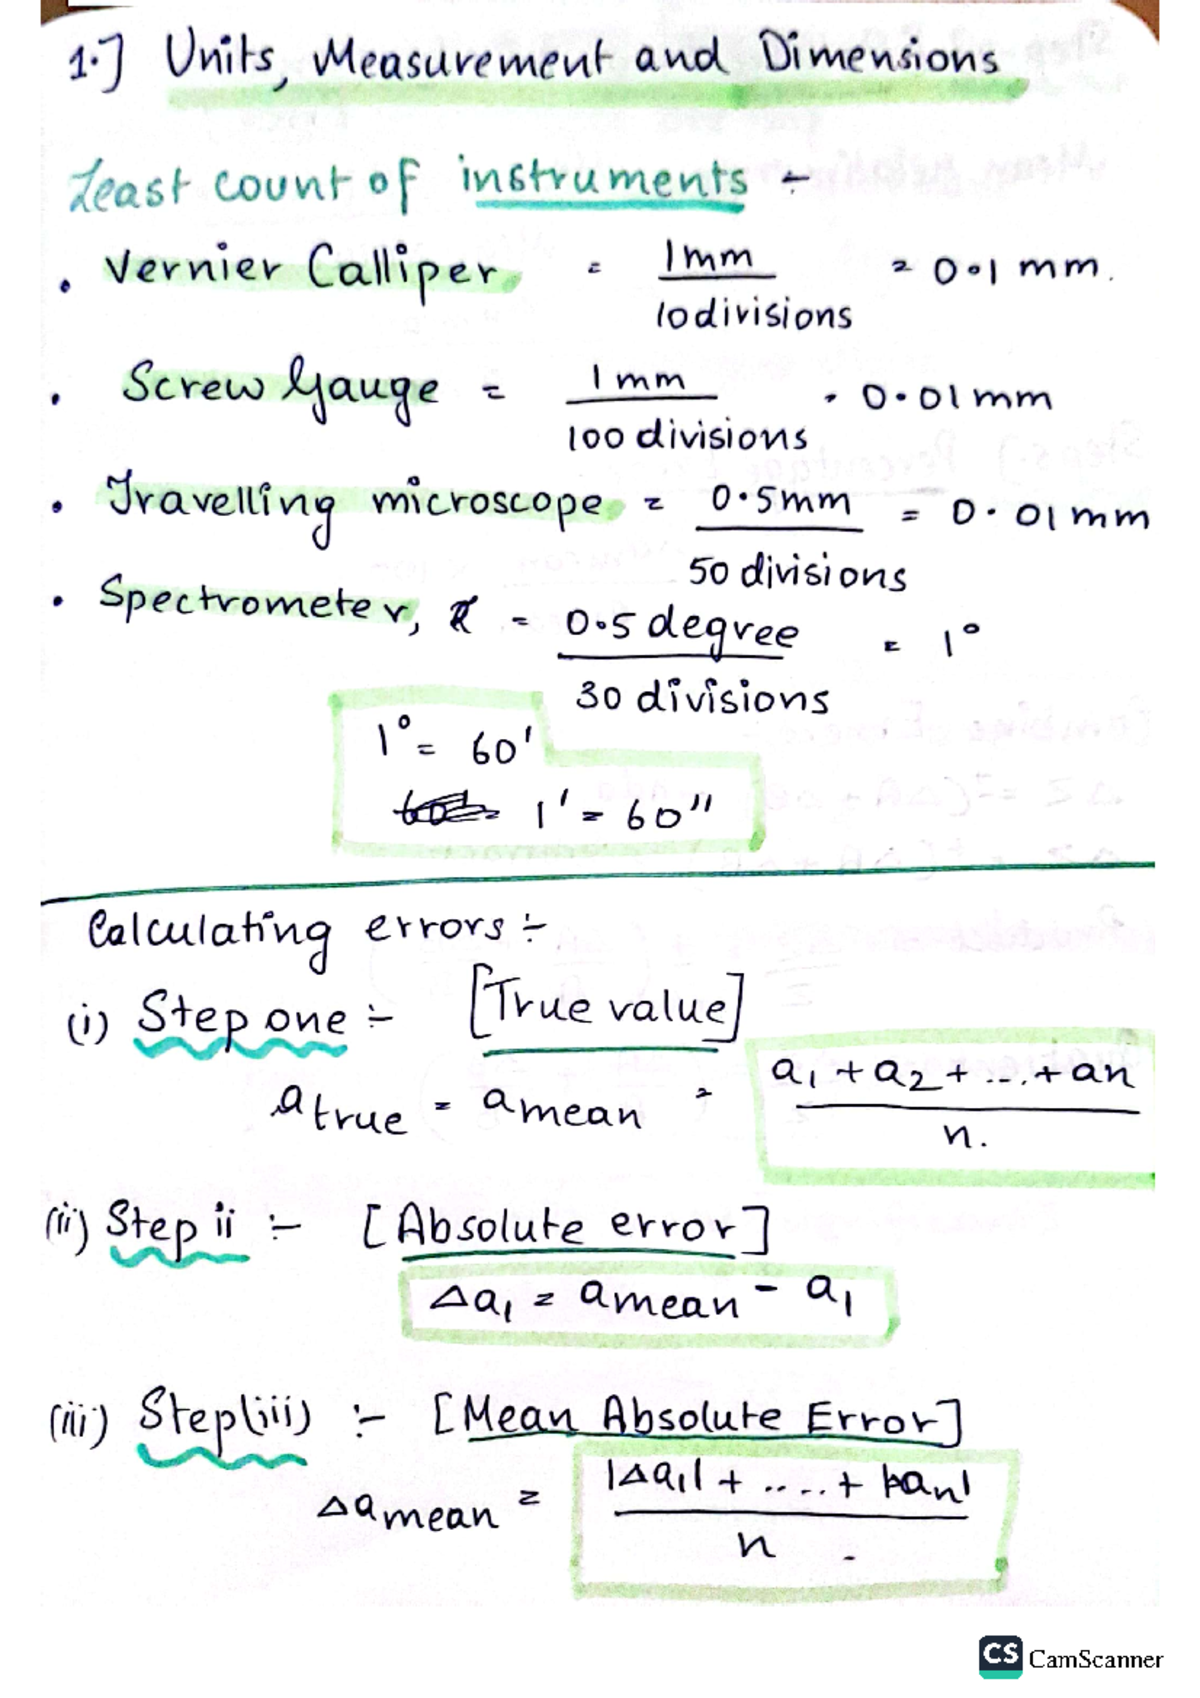 1.] Units, Measurement and Dimensions
Least count of instruments :-
• Vernier Calliper = 1mm / 10 divisions = 0.1 mm.
• Screw Gauge = 1 mm / 100 divisions = 0.01 mm
• Travelling microscope = 0.5mm / 50 divisions = 0.01 mm
• Spectrometer, = 0.5 degree / 30 divisions = 1°
1° = 60'
1' = 60"
Calculating errors :-
(i) Step one :- [True value]
a true = a mean = a1 + a2 + ... + an / n.
(ii) Step ii :- [Absolute error]
Δa1 = a mean - a1
(iii) Step(iii) :- [Mean Absolute Error]
Δa mean = |Δa1| + ..... + |an| / n .
CS CamScanner